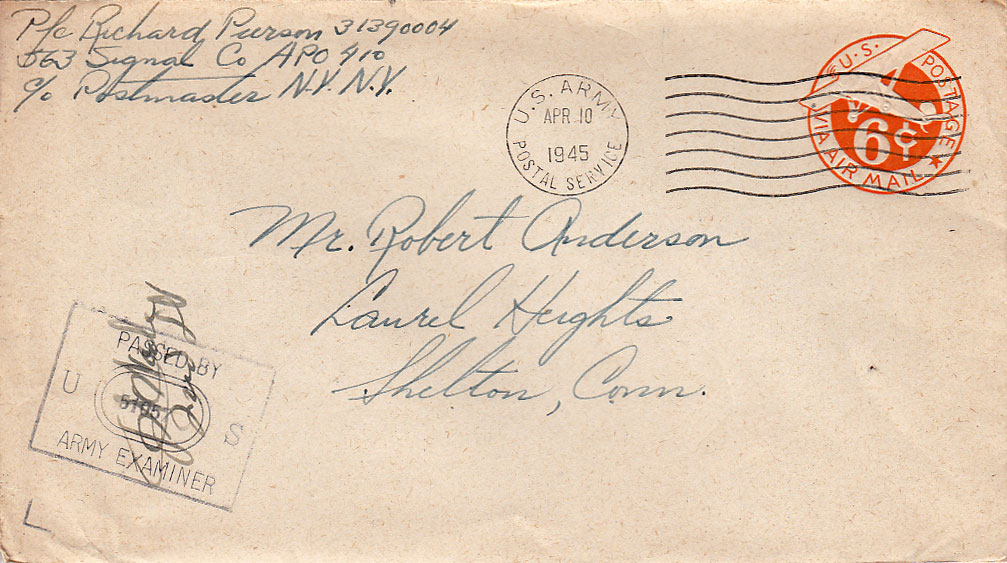 Pfc Richard Pierson 31390004
563 Signal Co APO 410
c/o Postmaster N.Y. N.Y.
U.S. ARMY
APR 10
1945
POSTAL SERVICE
U.S. POSTAGE
6¢
VIA AIR MAIL
Mr. Robert Anderson
Laurel Heights
Shelton, Conn.
PASSED BY
U S
ARMY EXAMINER